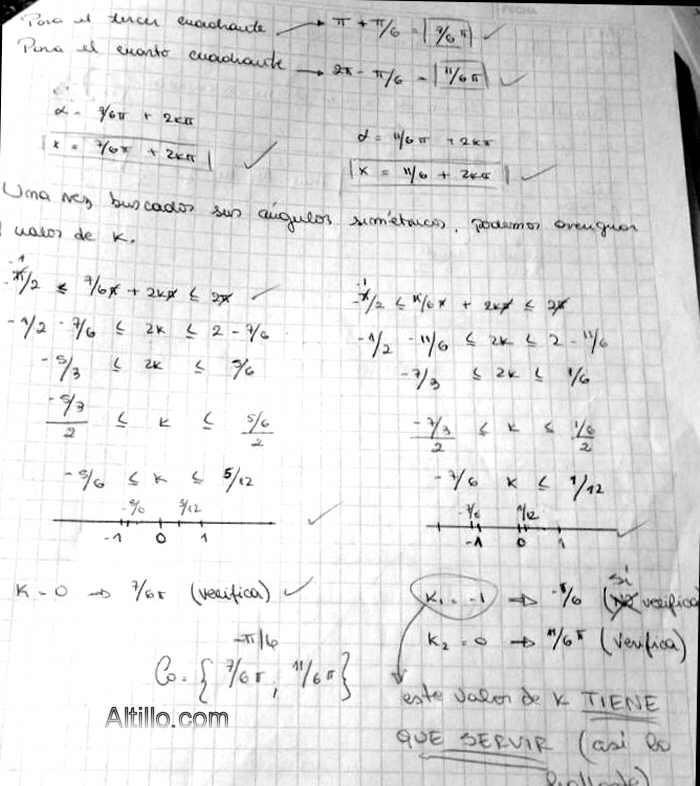 Para el tercer cuadrante → π + π/6 = 7/6 π ✓
Para el cuarto cuadrante → 2π - π/6 = 11/6 π ✓
α = 7/6π + 2kπ
x = 7/6π + 2kπ ✓
α = 11/6π + 2kπ
x = 11/6 + 2kπ ✓
Una vez buscados sus ángulos simétricos, podemos averiguar
valor de k.
-π/2 ≤ 7/6π + 2kπ ≤ 2π ✓
-1/2 - 7/6 ≤ 2k ≤ 2 - 7/6
-5/3 ≤ 2k ≤ 5/6
-5/3 / 2 ≤ k ≤ 5/6 / 2
-5/6 ≤ k ≤ 5/12
-5/6 5/12
-1 0 1 ✓
k = 0 → 7/6π (verifica) ✓
-π/2 ≤ 11/6π + 2kπ ≤ 2π
-1/2 - 11/6 ≤ 2k ≤ 2 - 11/6
-7/3 ≤ 2k ≤ 1/6
-7/3 / 2 ≤ k ≤ 1/6 / 2
-7/6 k ≤ 1/12
-7/6 1/12
-1 0 1 ✓
Si
k₁ = -1 → (No verifica)
k₂ = 0 → 11/6π (verifica)
-π/6
Co = { 7/6π, 11/6π }
Altillo.com
este valor de k TIENE
QUE SERVIR (así lo